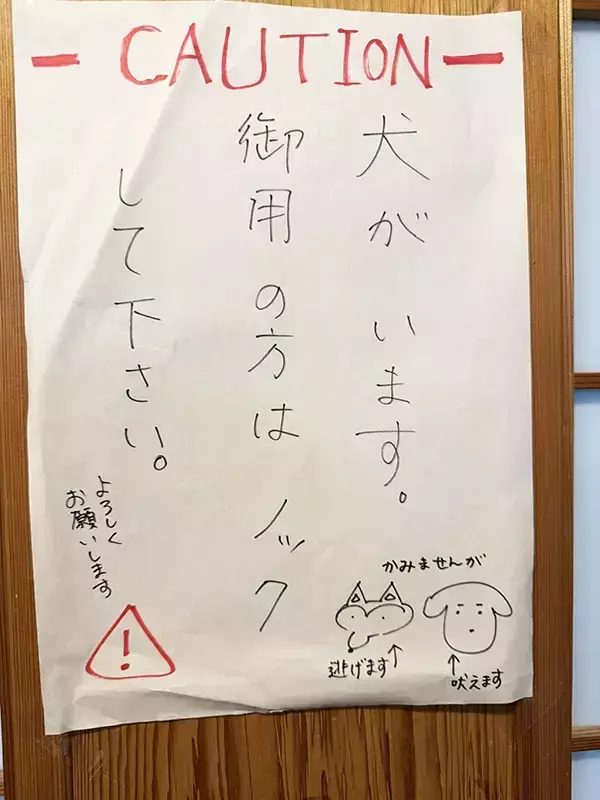 - CAUTION -
犬がいます。
御用の方はノック
して下さい。
よろしく
お願いします
!
かみませんが
逃げます
吠えます